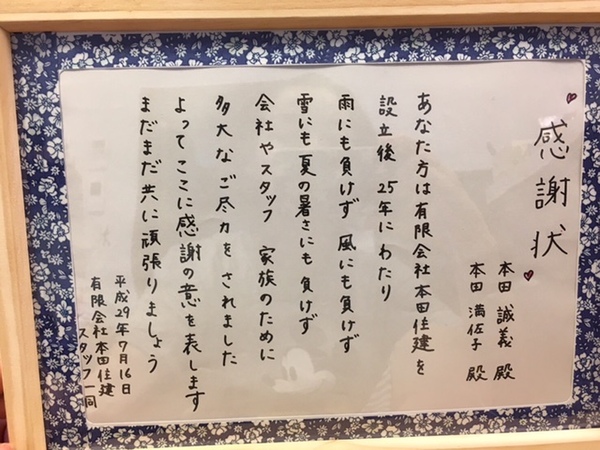 感謝状
本田 誠義 殿
本田 満佐子 殿
あなた方は有限会社本田住建を
設立後 25年にわたり
雨にも負けず 風にも負けず
雪にも夏の暑さにも負けず
会社やスタッフ 家族のために
多大なご尽力をされました
よってここに感謝の意を表します
まだまだ共に頑張りましょう
平成29年7月16日
有限会社本田住建
スタッフ一同